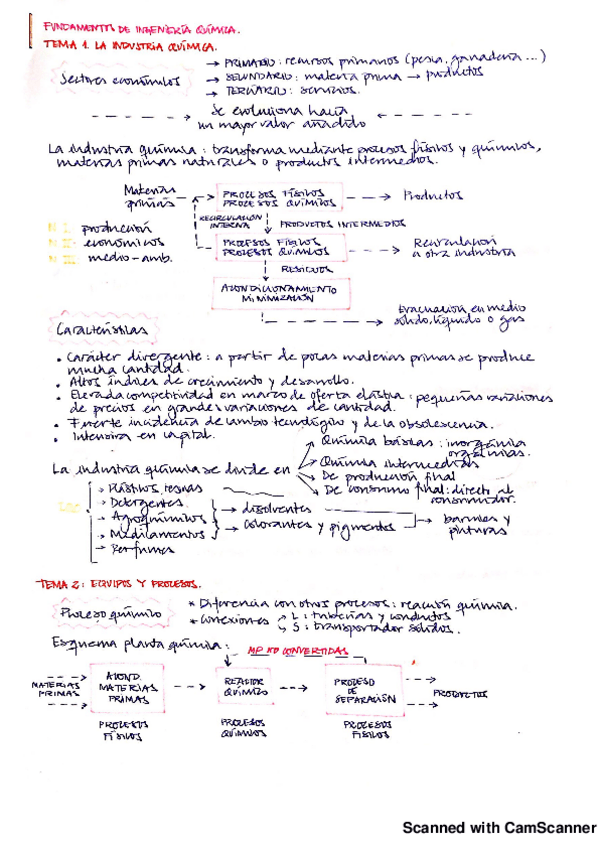 FUNDAMENTOS DE INGENIERÍA QUÍMICA.
TEMA 1. LA INDUSTRIA QUÍMICA.
Sectores económicos
→ PRIMARIO: recursos primarios (pesca, ganadería ...)
→ SECUNDARIO: materia prima → productos
→ TERCIARIO: servicios.
Se evoluciona hacia
un mayor valor añadido
La industria química: transforma mediante procesos físicos y químicos,
materias primas naturales o productos intermedios.
Materias primas
PROCESOS FÍSICOS
PROCESOS QUÍMICOS
Productos
RECIRCULACIÓN INTERNA
PRODUCTOS INTERMEDIOS
producción
económicos
medio-amb.
PROCESOS FÍSICOS
PROCESOS QUÍMICOS
Recirculación
a otra industria
RESIDUOS
ACONDICIONAMIENTO
MINIMIZACIÓN
Evacuación en medio
sólido, líquido o gas
Características
• Carácter divergente: a partir de pocas materias primas se produce
mucha cantidad.
• Altos índices de crecimiento y desarrollo.
• Elevada competitividad en marco de oferta elástica: pequeñas variaciones
de precios en grandes variaciones de cantidad.
• Fuerte incidencia de cambio tecnológico y de la obsolescencia.
• Intensiva en capital.
La industria química se divide en
Química básica: inorgánica
orgánicas.
Química intermedias
De producción final
De consumo final: directo al
consumidor.
→ Plásticos, resinas
→ Detergentes
→ Agroquímicos
→ Medicamentos
→ Perfumes
→ disolventes
→ colorantes y pigmentos
→ barnices y
pinturas
TEMA 2: EQUIPOS Y PROCESOS.
Proceso químico
* Diferencia con otros procesos: reacción química.
* Conexiones
L: tuberías y conductos
S: transportador sólidos.
Esquema planta química:
MP NO CONVERTIDAS
MATERIAS
PRIMAS
ACOND.
MATERIAS
PRIMAS
REACTOR
QUÍMICO
PROCESO
DE
SEPARACIÓN
PRODUCTOS
PROCESOS
FÍSICOS
PROCESOS
QUÍMICOS
PROCESOS
FÍSICOS
Scanned with CamScanner